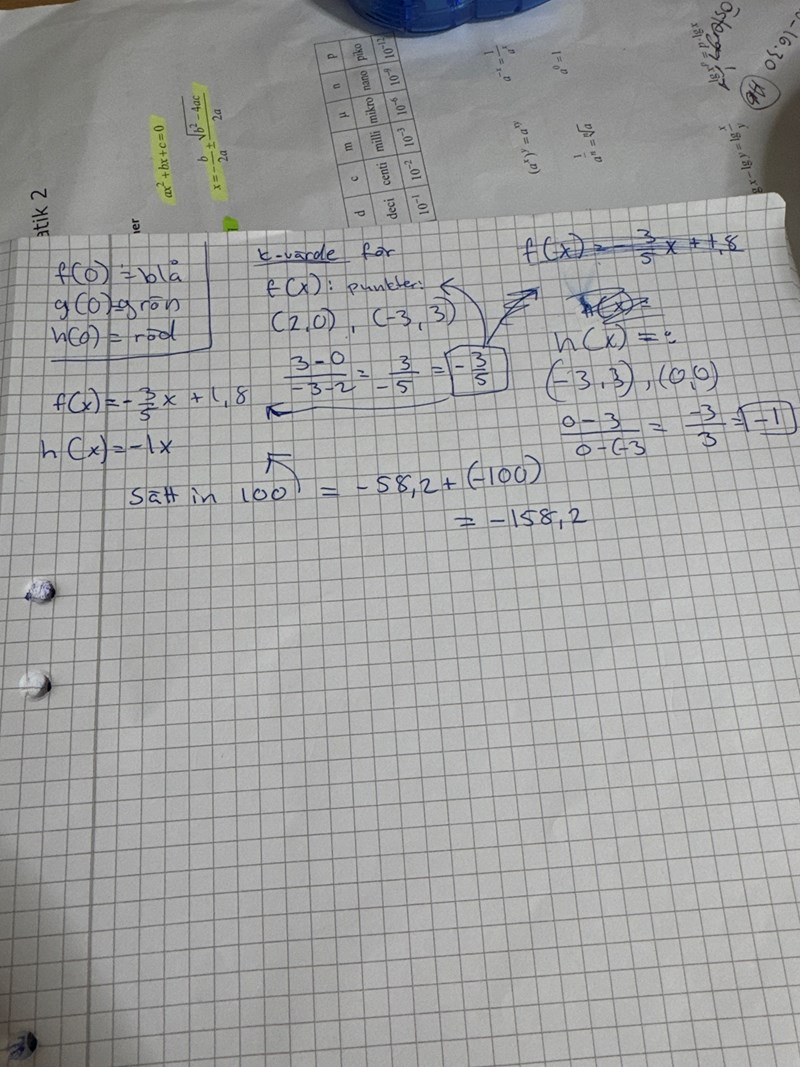 atik 2
ner
ax² + bx + c = 0
x = -b/2a ± √(b² - 4ac)/2a
d c m μ n p
deci centi milli mikro nano piko
10⁻¹ 10⁻² 10⁻³ 10⁻⁶ 10⁻⁹ 10⁻¹²
a⁻ˣ = 1/aˣ
a⁰ = 1
(aˣ)ʸ = aˣʸ
-16.30
f(0) = blå
g(0) = grön
h(0) = röd
k-värde för
f(x): punkter:
(2,0), (-3,3)
(3-0)/(-3-2) = 3/-5 = -3/5
f(x) = -3/5 x + 1,8
h(x) = ?
(-3,3), (0,0)
(0-3)/(0-(-3) = -3/3 = -1
f(x) = -3/5 x + 1,8
h(x) = -1x
Sätt in 100 = -58,2 + (-100)
= -158,2